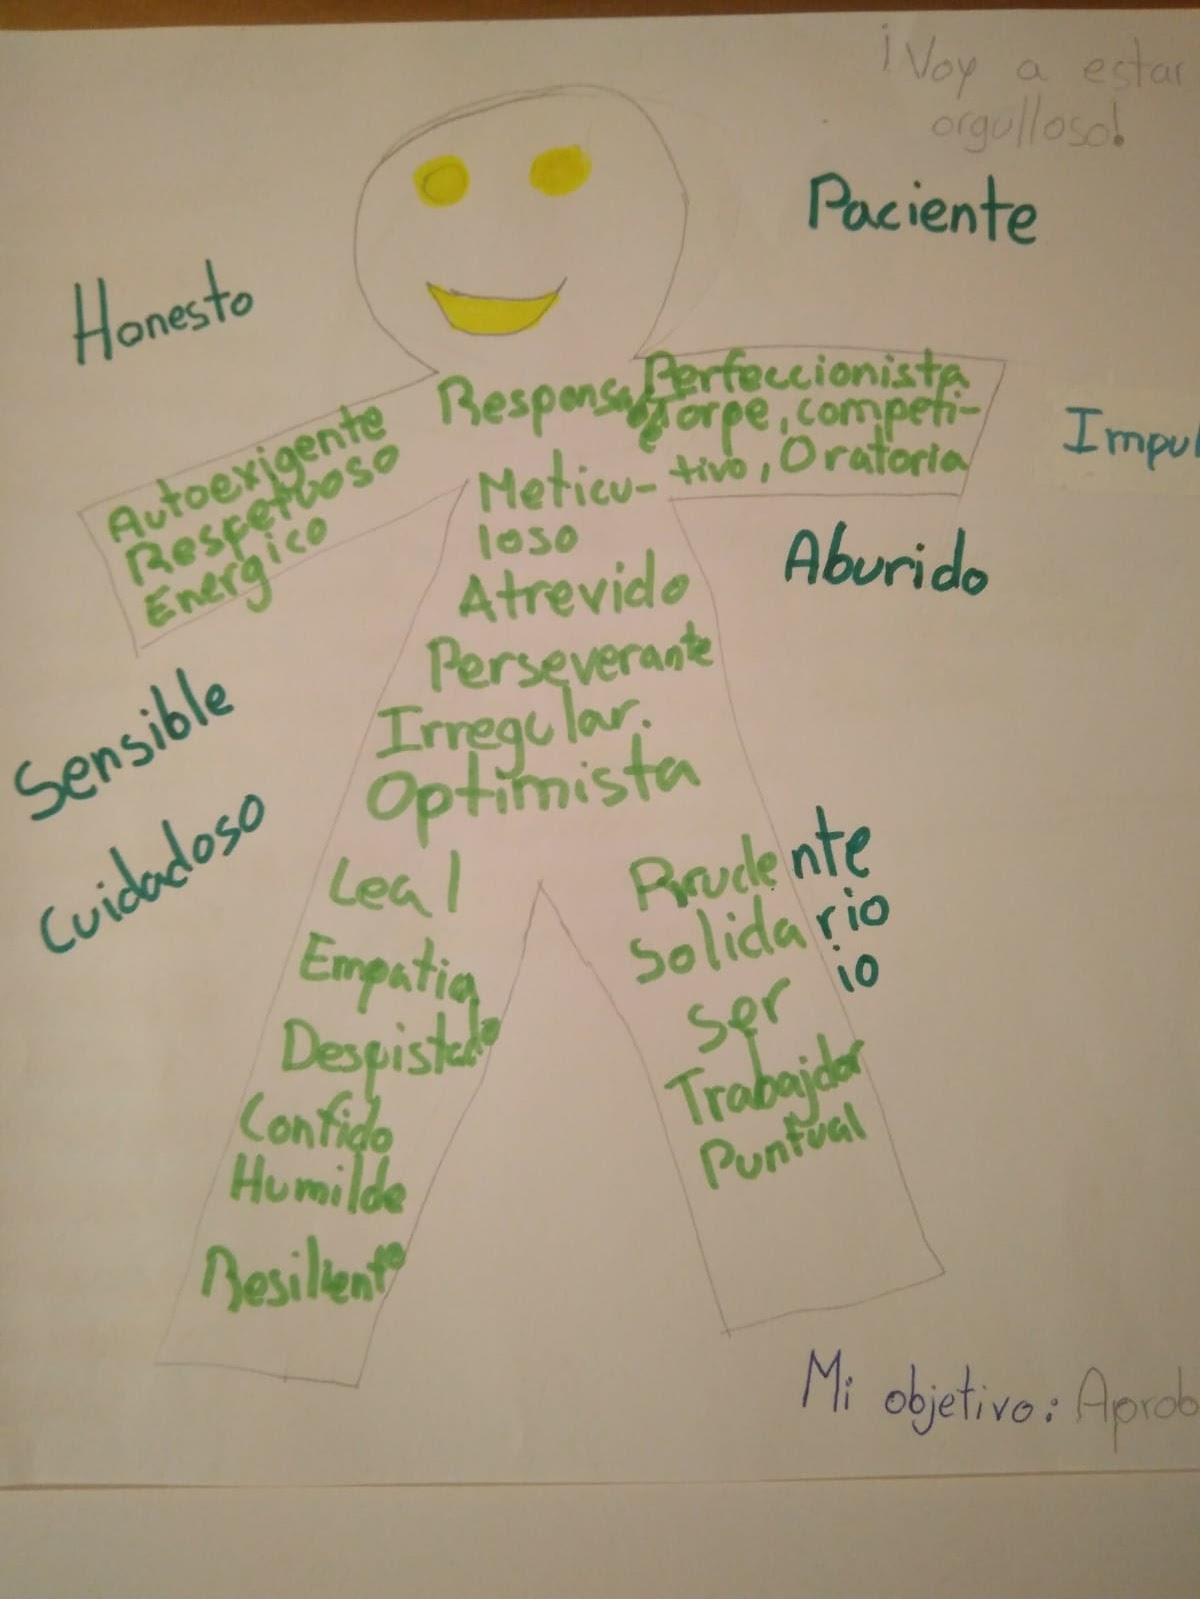 ¡Voy a estar
orgulloso!
Paciente
Honesto
Autoexigente
Respetuoso
Energico
Responsable
Perfeccionista
Torpe, competi-
tivo, Oratoria
Impul
Meticu-
loso
Aburido
Atrevido
Perseverante
Irregular.
Optimista
Sensible
Cuidadoso
Leal
Empatia
Despistado
Confido
Humilde
Resiliente
Prudente
Solidario
Ser io
Trabajdor
Puntual
Mi objetivo: Aprob